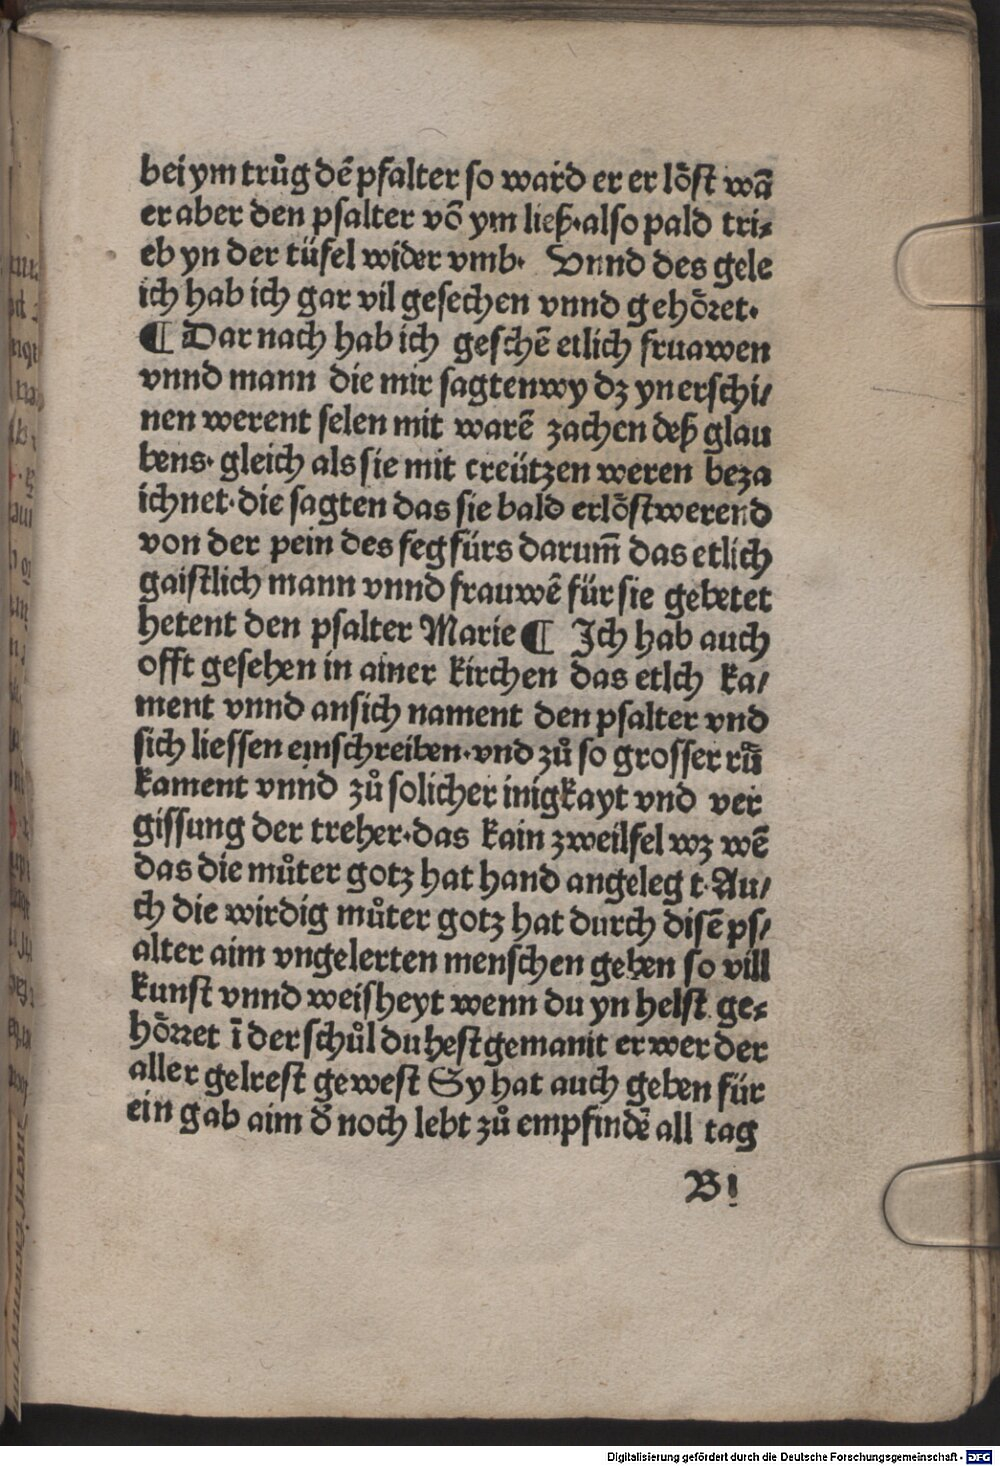 bei ym trůg dē psalter so ward er er löst wā
er aber den psalter vō ym ließ·also pald tri⸗
eb yn der tüfel wider vmb· Vnnd des gele
ich hab ich gar vil gesechen vnnd gehöret·
¶ Dar nach hab ich geschē etlich fruawen
vnnd mann die mir sagtenwy dz yn erschi/
nen werent selen mit warē zachen deß glau
bens· gleich als sie mit creützen weren beza
ichnet·die sagten das sie bald erlöstwerend
von der pein des fegfürs darum̄ das etlich
gaistlich mann vnnd frauwē für sie gebetet
hetent den psalter Marie ¶ Ich hab auch
offt gesehen in ainer kirchen das etlch ka/
ment vnnd ansich nament den psalter vnd
sich liessen einschreiben·vnd zů so grosser rṻ
kament vnnd zů solicher inigkayt vnd ver
gissung der treher·das kain zweilfel wz wē
das die můter gotz hat hand angeleg t·Au/
ch die wirdig můter gotz hat durch disē ps/
alter aim vngelerten menschen geben so vill
kunst vnnd weisheyt wenn du yn helst ge⸗
hörret ī der schůl du hest gemanit er wer der
aller gelrest gewest Sy hat auch geben für
ein gab aim d̄ noch lebt zů empfindē all tag
B i
Digitalisierung gefördert durch die Deutsche Forschungsgemeinschaft - DFG